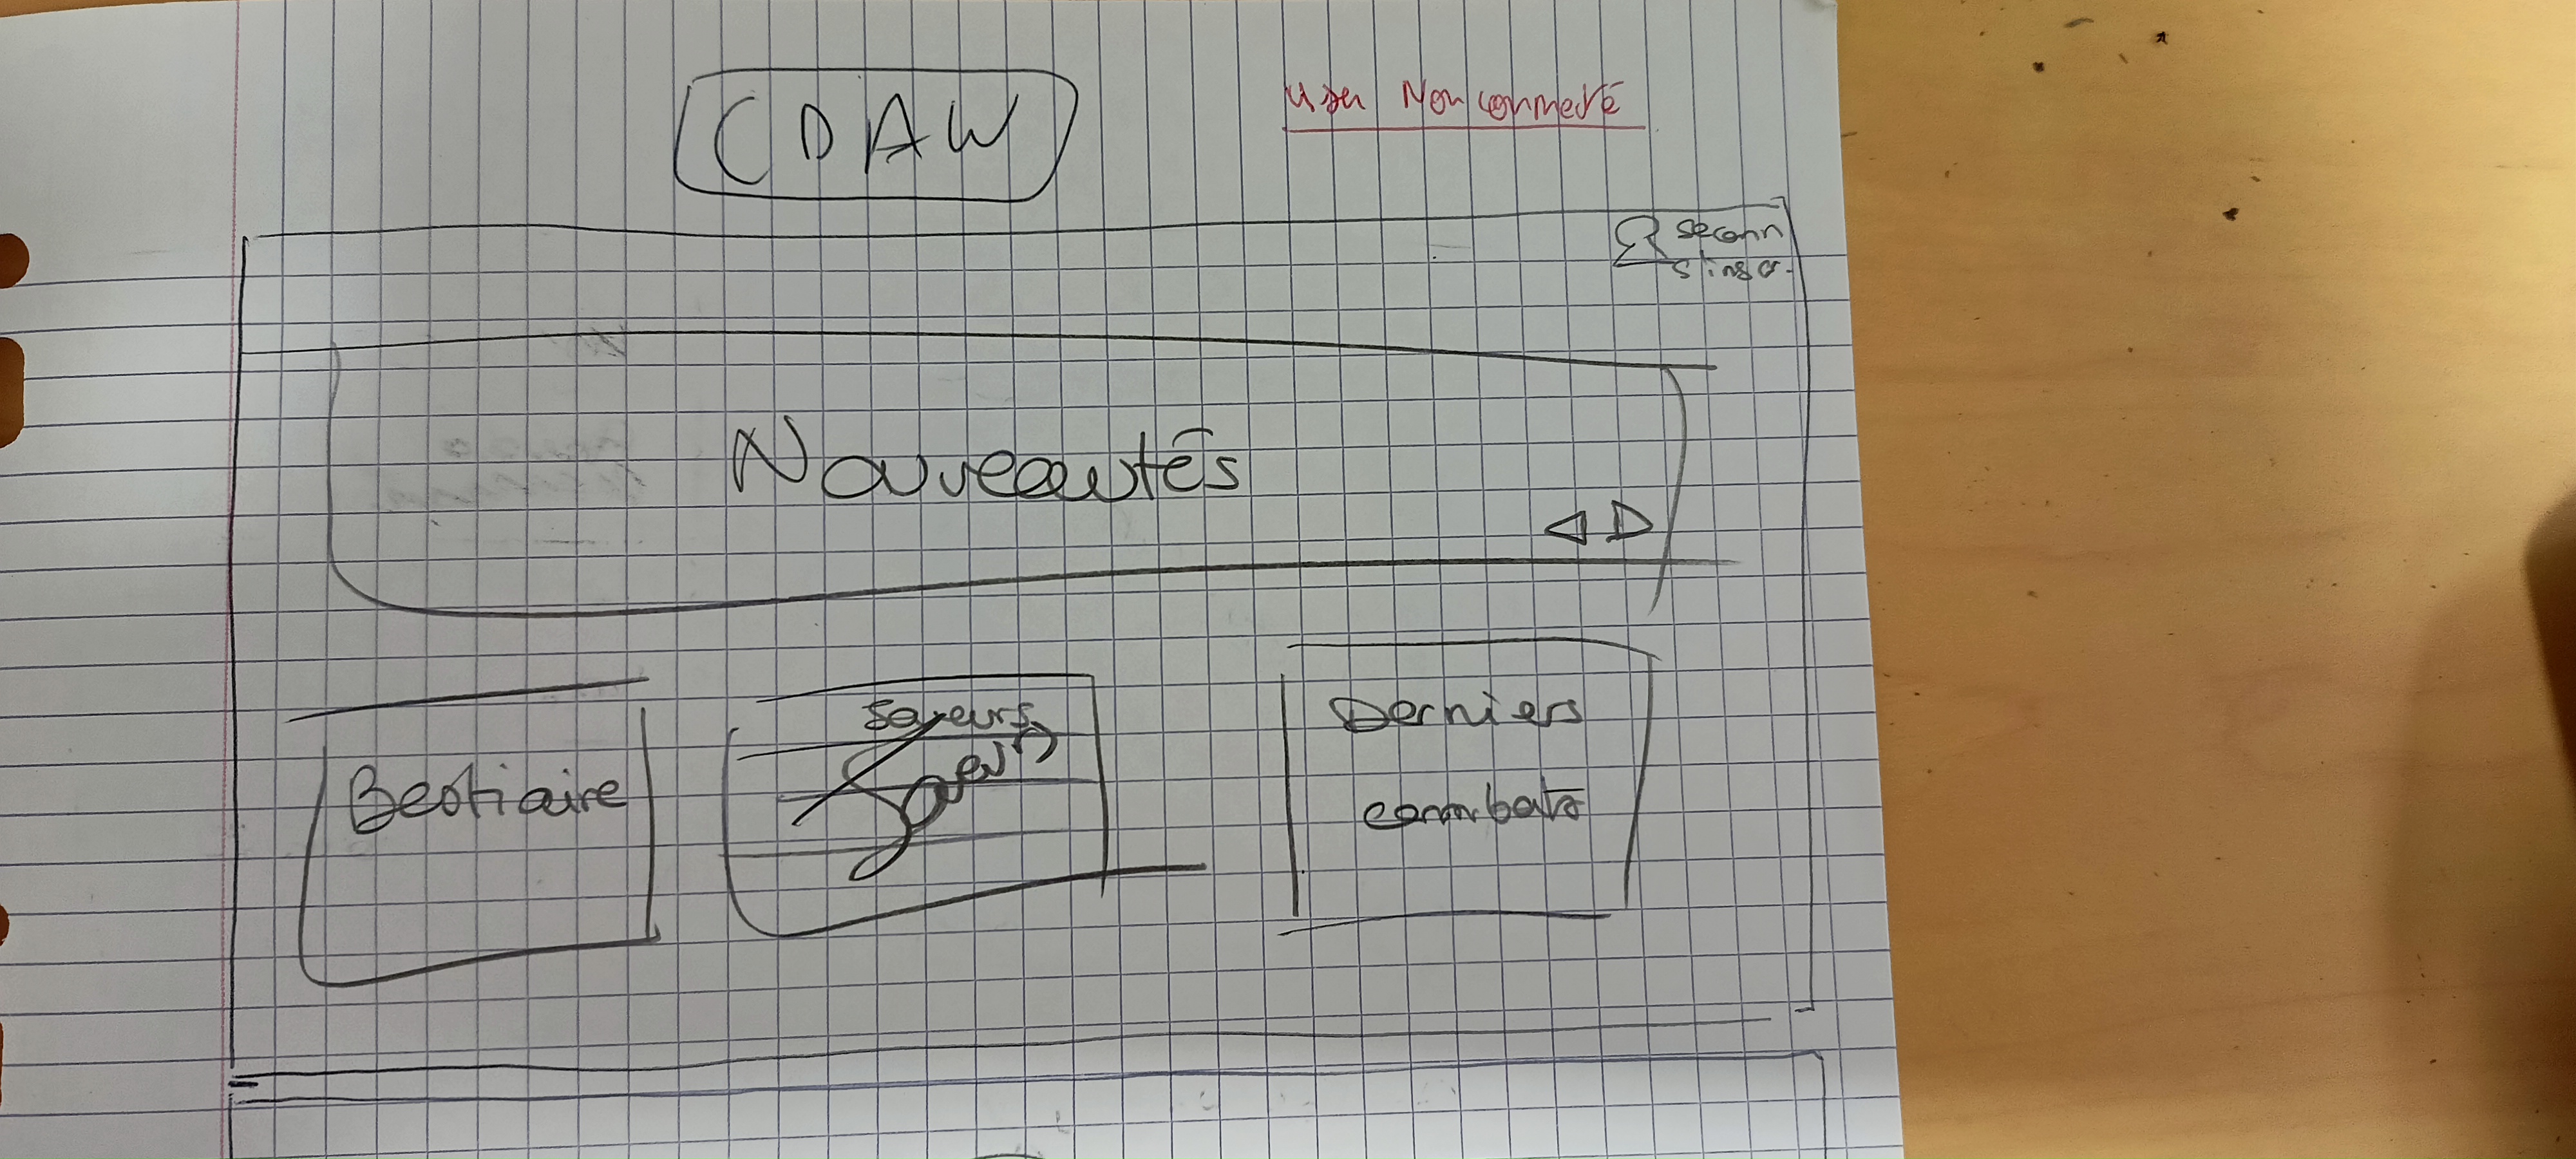 CDAW
User Non connecté
se conn
s'inscr.
Nouveautés
Bestiaire
Joueurs
Joueurs
Derniers
combats